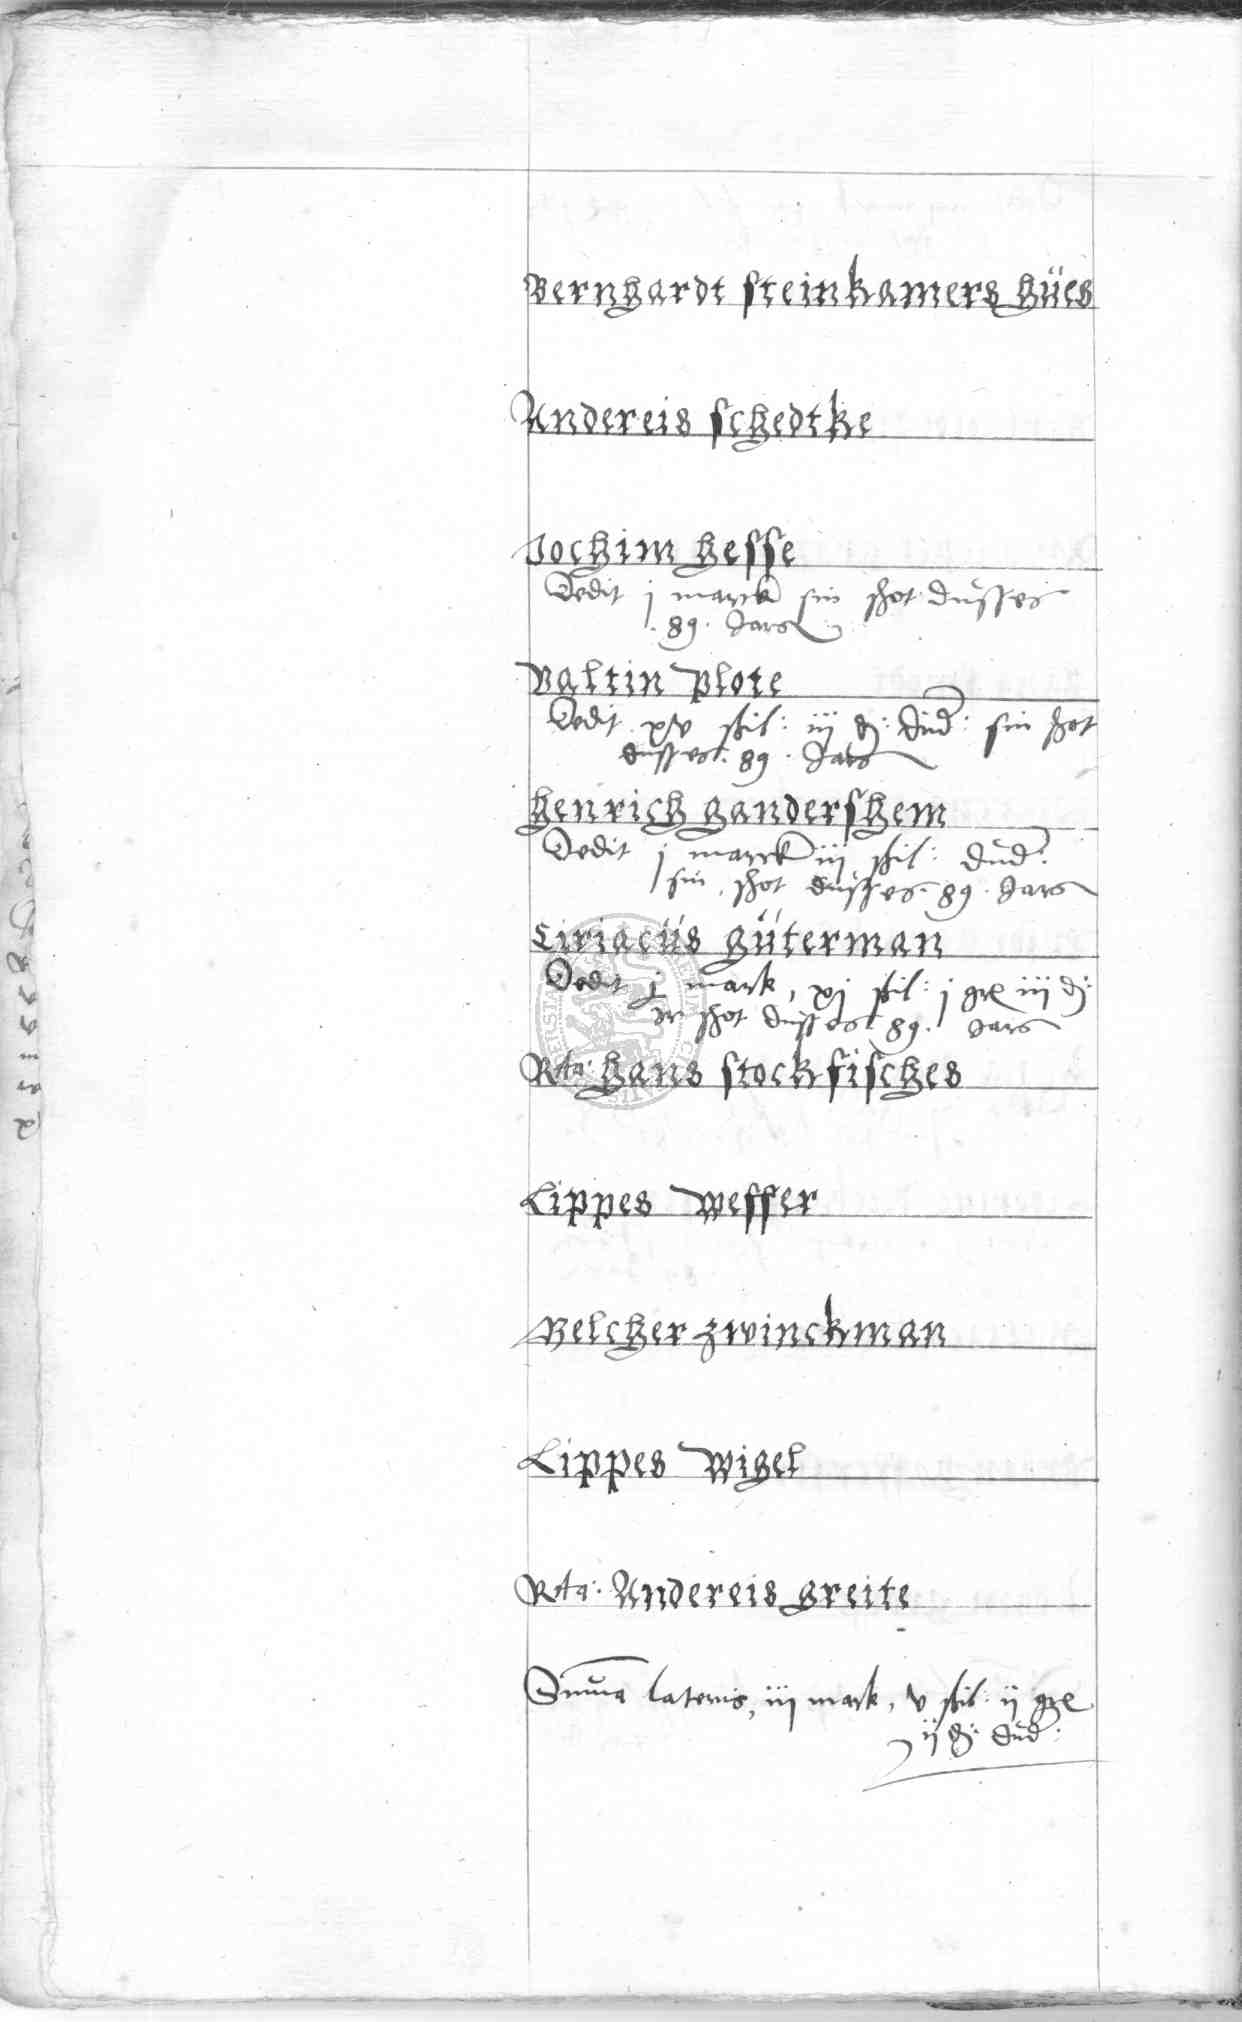 Bernhardt steinkamers hües
Andereis schedtke
Jochim hesse
Dedit j marck sin schot düsses
89. Jars
Valtin Plote
Dedit xv schil: iij d: sin schot
düsses. 89. Jars
henrich gandershem
Dedit j marck iij schil:
sin schot düsses. 89. Jars
Ciriacüs güterman
Dedit j mark, xj schil: j gr iij d:
schot düsses 89. Jars
Rta: hans stockfisches
Lippes Wesser
Melcher zwinckman
Lippes Wigel
Rta: Andereis greite
Summa lateris, iij mark, v schil: ij gr
ij d: